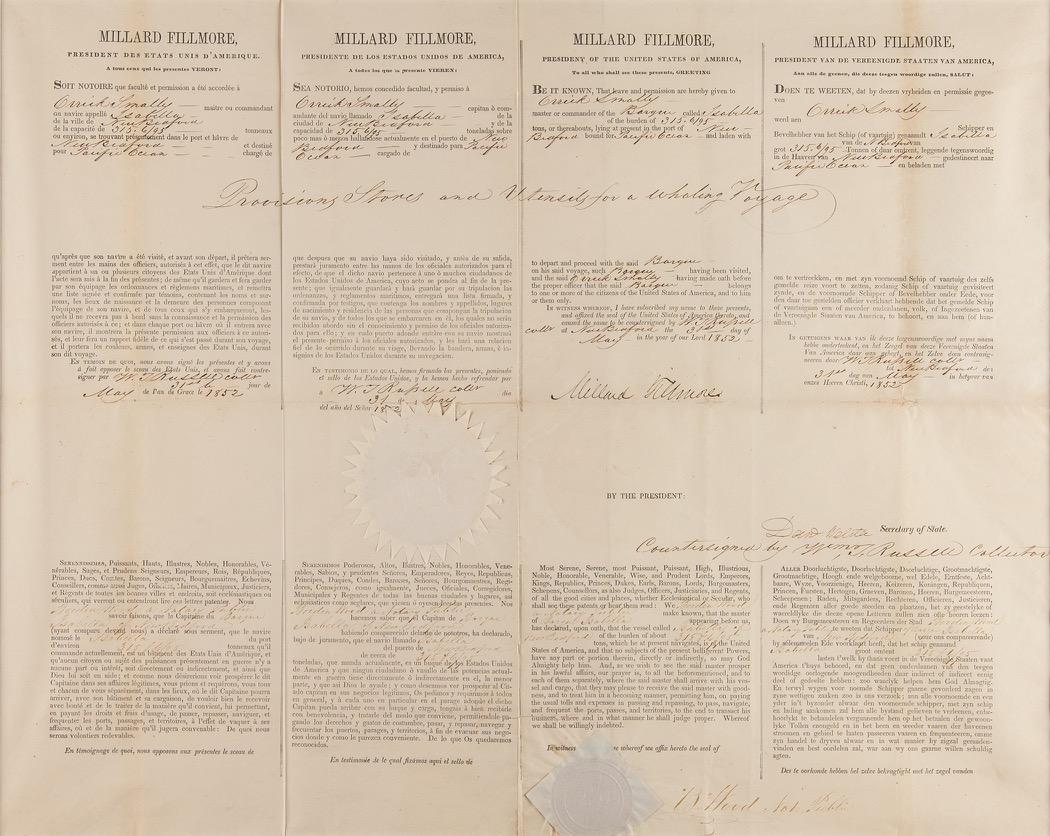 MILLARD FILLMORE,
PRESIDENT DES ETATS UNIS D'AMERIQUE.
A tous ceux qui les presentes VERONT:
SOIT NOTOIRE que faculté et permission a été accordée à
Orrick Smally maitre ou commandant
du navire appellé Isabella
de la ville de New Bedford
de la capacité de 315. 6/95 tonneaux
ou environ, se trouvant présentement dans le port et hâvre de
New Bedford et destiné
pour Pacific Ocean chargé de
MILLARD FILLMORE,
PRESIDENTE DE LOS ESTADOS UNIDOS DE AMERICA,
A todos los que la presente VIEREN:
SEA NOTORIO, hemos concedido facultad, y permiso á
Orrick Smally capitan ó com-
andante del navio llamado Isabella de la
ciudad de New Bedford y de la
capacidad de 315. 6/95 toneladas sobre
poco mas ó menos hallandose actualmente en el puerto de New
Bedford y destinado para Pacific
Ocean cargado de
MILLARD FILLMORE,
PRESIDENT OF THE UNITED STATES OF AMERICA,
To all who shall see these presents, GREETING
BE IT KNOWN, That leave and permission are hereby given to
Orrick Smally
master or commander of the Barque called Isabella
of the burden of 315. 6/95
tons, or thereabouts, lying at present in the port of New
Bedford bound for Pacific Ocean and laden with
MILLARD FILLMORE,
PRESIDENT VAN DE VEREENIGDE STAATEN VAN AMERICA,
Aan alle de geenen, die deeze tegen woordige zullen, SALUT:
DOEN TE WEETEN, dat by deezen vryheiden en permissie gegee-
ven
Orrick Smally
werd aen
Schipper en
Bevelhebber van het Schip (of vaartuig) genaamdt Isabella
van de N Bedford van
grot 315. 6/95 Tonnen of daar omtrent, leggende tegenswoordig
in de Haaven van New Bedford gedestineert naar
Pacific Ocean en beladen met
Provisions Stores and Utensils for a Whaling Voyage
qu'après que son navire a été visité, et avant son départ, il prêtera ser-
ment entre les mains des officiers, autorisés à cet effet, que le dit navire
appartient à un ou plusieurs citoyens des Etats Unis d'Amérique dont
l'acte sera mis à la fin des présentes; de même qu'il gardera et fera garder
par son équipage les ordonnances et réglemens maritimes, et remettra
une liste signée et confirmée par témoins, contenant les noms et sur-
noms, les lieux de naissance et la demeure des personnes composant
l'équipage de son navire, et de tous ceux qui s'y embarqueront, les-
quels il ne recevra pas à bord sans la connaissance et la permission des
officiers autorisés à ce; et dans chaque port ou hâvre où il entrera avec
son navire, il montrera la présente permission aux officiers à ce autori-
sés, et leur fera un rapport fidèle de ce qui s'est passé durant son voyage,
et il portera les couleurs, armes, et enseignes des Etats Unis, durant
son dit voyage.
EN TEMOIN DE QUOI, nous avons signé les présentes et y avons
à fait apposer le sceau des Etats Unis, et avons fait contre-
signer par W. T. Russell coll
31st jour de
May de l'an de Grace le 1852
que despues que su navio haya sido visitado, y antes de su salida,
prestará juramento entre las manos de los oficiales autorizados para el
efecto, de que el dicho navio pertenece á uno ó muchos ciudadanos de
los Estados Unidos de America, cuyo acto se pondrá al fin de la pre-
sente; que igualmente guardará y hará guardar por su tripulacion las
ordenanzas, y reglamentos maritimos, entregará una lista firmada, y
confirmada por testigos, que contenga los nombres y appellidos, lugares
de nacimiento y residencia de las personas que compongan la tripulacion
de su navio, y de todos los que se embarcaren en él, los quales no serán
recibidos abordo sin el conocimiento y permiso de los oficiales autoriza-
dos para ello; y en cada puerto adonde entráre con su navio mostrará
el presente permiso á los oficiales autorizados, y les hará una relacion
fiel de lo ocurrido durante su viage, llevando la bandera, armas, é in-
signios de los Estados Unidos durante su navegacion.
EN TESTIMONIO DE LO QUAL, hemos firmado las presentes, poniendo
el sello de los Estados Unidos, y lo hemos hecho refrendar por
á W. T. Russell coll dia
31 de May
del año del Señor 1852
to depart and proceed with the said Barque
on his said voyage, such Barque having been visited,
and the said Orrick Smally having made oath before
the proper officer that the said Barque belongs
to one or more of the citizens of the United States of America, and to him
or them only.
IN WITNESS WHEREOF, I have subscribed my name to these presents,
and affixed the seal of the United States of America thereto, and
caused the same to be countersigned by W. T. Russell
coll at New Bedford the 31st day of
May in the year of our Lord 1852
Millard Fillmore
om te vertrekken, en met zyn voornoemd Schip of vaartuig des zelfs
gemelde reize voort te zetten, zodanig Schip of vaartuig gevisiteert
zynde, en de voornoemde Schipper of Bevelhebber onder Eede, voor
den daar toe gestelden officier verklaart hebbende dat het gemelde Schip
of vaartuigen een of meerder onderdanen, volk, of Ingezeetenen van
de Vereenigde Staaten van America, to behoort, en aan hem (of hun-
alleen.)
IN GETUIGENIS WAAR VAN ik deeze tegenswoordige met myne naam
hebbe onderteekend, en het Zeegel van deeze Vereenigde Staaten
Van America daar aan gehegt, en het Zelve doen contrasig-
neeren door W. T. Russell coll
tot New Bedford den
31st dag van May in het jaar van
onzes Heeren Christi, 1852
BY THE PRESIDENT:
Danl Webster Secretary of State.
Countersigned by Wm T. Russell Collector
SERENISSIMES, Puissants, Hauts, Illustres, Nobles, Honorables, Vé-
nérables, Sages, et Prudens Seigneurs, Empereurs, Rois, Républiques,
Princes, Ducs, Comtes, Barons, Seigneurs, Bourguemaitres, Echevins,
Conseillers, comme aussi Juges, Officiers, Maires, Municipaux, Justiciers,
et Regents de toutes les bonnes villes et endroits, soit ecclésiastiques ou
séculiers, qui verront ou entendront lire ces lettres patentes. Nous
vous faisons savoir, que le Capitaine du Barque
Isabella
(ayant comparu devant nous) a déclaré sous serment, que le navire
nommé le du port
d'environ tonneaux qu'il
commande actuellement, est un bâtiment des Etats Unis d'Amérique, et
qu'aucun citoyen ou sujet des puissances présentement en guerre n'y a
aucune part ou intérêt, soit directement ou indirectement, et ainsi que
Dieu lui soit en aide; et comme nous désirerions voir prospérer le dit
Capitaine dans ses affaires légitimes, vous prions et requérons, vous tous
et chacun de vous séparément, dans les lieux, où le dit Capitaine pourra
arriver, avec son bâtiment et sa cargaison, de vouloir bien le recevoir
avec bonté et de le traiter de la manière qu'il convient, lui permettant,
en payant les droits et frais d'usage, de passer, repasser, naviguer, et
fréquenter les ports, passages, et territoires, à l'effet de vaquer à ses
affaires, où et de la manière qu'il jugera convenable: De quoi nous
serons volontiers redevables.
En témoignage de quoi, nous apposons aux présentes le sceau de
SERENISIMOS Poderosos, Altos, Ilustres, Nobles, Honorables, Vene-
rables, Sabios, y Prudentes Señores, Emperadores, Reyes, Republicas,
Principes, Duques, Condes, Barones, Señores, Burgomaestres, Regi-
dores, Consejeros, igualmente Jueces, Oficiales, Corregidores,
Municipales y Regentes de todas las buenas ciudades y lugares, asi
eclesiasticos como seglares, que vieren ó oyeren leer las presentes. Nos
hacemos saber que el Capitan de Barque
Isabella
habiendo comparecido delante de nosotros, ha declarado,
bajo de juramento, que el navio llamado Isabella
del puerto de
de cerca de
toneladas, que manda actualmente, es un buque de los Estados Unidos
de America y que ningun ciudadano ó vasallo de las potencias actual-
mente en guerra tiene directamente ó indirectamente en el, la menor
parte, y que asi Dios le ayude; y como deseamos ver prosperar al Ci-
tado capitan en sus negocios legitimos, Os pedimos y requirimos á todos
en general, y á cada uno en particular en el parage adonde el dicho
Capitan pueda arribar con su buque y carga, tengais á bien recibirle
con benevolencia, y tratarle del modo que conviene, permitiendole pa-
gando los derechos y gastos de costumbre, pasar, y repasar, navegar, y
frecuentar los puertos, parages, y territorios, á fin de evacuar sus nego-
cios donde y como le parezca conveniente. De lo que Os quedaremos
reconocidos.
En testimonio de lo qual fixamos aqui el sello de
Most Serene, Serene, most Puissant, Puissant, High, Illustrious,
Noble, Honorable, Venerable, Wise, and Prudent Lords, Emperors,
Kings, Republics, Princes, Dukes, Earls, Barons, Lords, Burgomasters,
Schepens, Counsellors, as also Judges, Officers, Justiciaries, and Regents,
of all the good cities and places, whether Ecclesiastical or Secular, who
shall see these patents or hear them read: We
make known, that the master
of appearing before us,
has declared, upon oath, that the vessel called
of the burden of about 315
tons, which he at present navigates, is of the United
States of America, and that no subjects of the present belligerent Powers,
have any part or portion therein, directly or indirectly, so may God
Almighty help him. And, as we wish to see the said master prosper
in his lawful affairs, our prayer is, to all the beforementioned, and to
each of them separately, where the said master shall arrive with his ves-
sel and cargo, that they may please to receive the said master with good-
ness, and to treat him in a becoming manner, permitting him, on paying
the usual tolls and expenses in passing and repassing, to pass, navigate,
and frequent the ports, passes, and territories, to the end to transact his
business, where and in what manner he shall judge proper. Whereof
we shall be willingly indebted.
In witness whereof we affix hereto the seal of
ALLER Doorluchtigste, Doorluchtigste, Daorluchtige, Grootmachtigste,
Grootmachtige, Hoogh ende welgeboorne, wel Edele, Erntfeste, Acht-
baare, Wyze, Voorzienige, Heeren, Keizeren, Koningen, Republiquen,
Princen, Fursten, Hertogen, Graeven, Baronen, Heeren, Burgemeestern,
Schepenen; Raden, Mitsgarders, Rechteren, Officieren, Justicieren,
ende Regenten aller goede steeden en plaatzen, het zy geestelyke of
waereldlyke die deeze opene Letteren zullen zien olte hooren leezen:
Doen wy Burgermeesteren en Regeerders der Stad
te weeten dat Schipper
van (voor ons compareerende)
by afleggenden Eede verklaart heeft, dat het schip genaamd
Isabella groot omtent
lasten t'welk hy thans voert in de Vereenigde Staaten vaar
America t'huys behoord, en dat geen onderdanen van den tegen
wordige oorlogende moogendheeden daar indirect of indirect eenig
deel of gedeelte hebben; zoo waarlyk helpen hem God Almagtig.
En terwyl wygen voor nomde Schipper gaarne gevordeed zagen in
zyne wettigen zaken zoo is ons verzoek; aan alle voornoemde en een
yder in't byzonder alwaar den voornoemde schipper, met zyn schip
en lading aankomen zal hem alle bystand gelieven te verlenen, enbe-
hoorlykt te behandelen vergunnende hem op het betaalen der gewoon-
lyke Tollen eengeld en in het heen en weeder vaaren der haavenen
stroomen en gebied te laaten passeeren vaaren en frequenteeren, omme
zyn handel te dryven alwaar en in wat manier hy zigtig geraaden-
vinden en best oordelen zal, war aan wy ons gaarne willen schuldig
agten.
Des te oorkonde hebben het zelve bekragtigt met het zegel vanden
B. Wood Not. Public